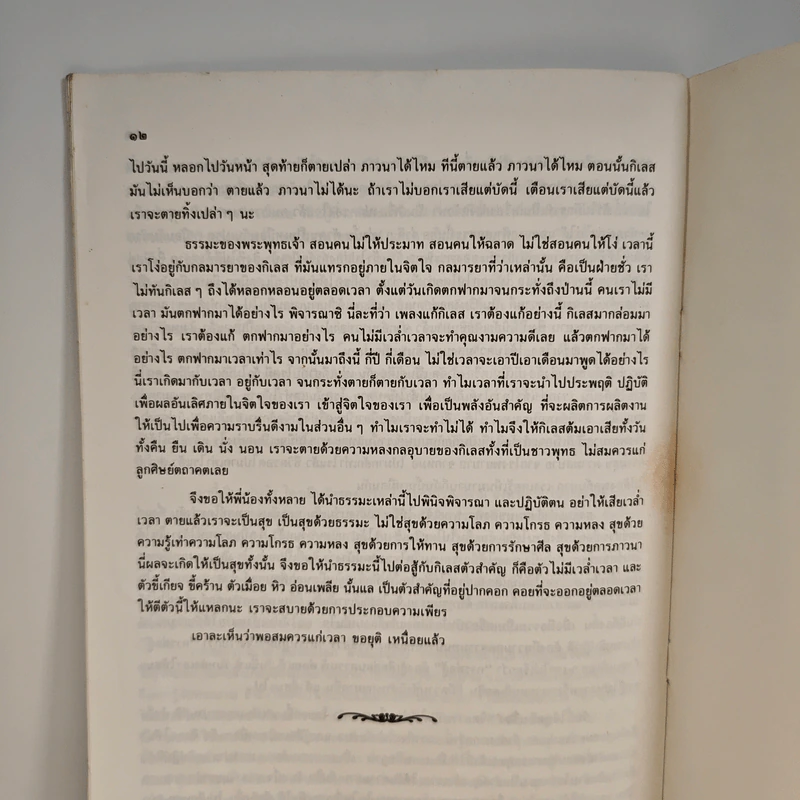 ๑๒
ไปวันนี้ หลอกไปวันหน้า สุดท้ายก็ตายเปล่า ภาวนาได้ไหม ทีนี้ตายแล้ว ภาวนาได้ไหม ตอนนั้นกิเลส
มันไม่เห็นบอกว่า ตายแล้ว ภาวนาไม่ได้นะ ถ้าเราไม่บอกเราเสียแต่บัดนี้ เตือนเราเสียแต่บัดนี้แล้ว
เราจะตายทิ้งเปล่า ๆ นะ
ธรรมะของพระพุทธเจ้า สอนคนไม่ให้ประมาท สอนคนให้ฉลาด ไม่ใช่สอนคนให้โง่ เวลานี้
เราโง่อยู่กับกลมารยาของกิเลส ที่มันแทรกอยู่ภายในจิตใจ กลมารยาที่ว่าเหล่านั้น คือเป็นฝ่ายชั่ว เรา
ไม่ทันกิเลส ๆ ถึงได้หลอกหลอนอยู่ตลอดเวลา ตั้งแต่วันเกิดตกฟากมาจนกระทั่งถึงป่านนี้ คนเราไม่มี
เวลา มันตกฟากมาได้อย่างไร พิจารณาซิ นี่ละที่ว่า เพลงแก้กิเลส เราต้องแก้อย่างนี้ กิเลสมากล่อมมา
อย่างไร เราต้องแก้ ตกฟากมาอย่างไร คนไม่มีเวล่ำเวลาจะทำคุณงามความดีเลย แล้วตกฟากมาได้
อย่างไร ตกฟากมาเวลาเท่าไร จากนั้นมาถึงนี้ กี่ปี กี่เดือน ไม่ใช่เวลาจะเอาปีเอาเดือนมาพูดได้อย่างไร
นี่เราเกิดมากับเวลา อยู่กับเวลา จนกระทั่งตายก็ตายกับเวลา ทำไมเวลาที่เราจะนำไปประพฤติ ปฏิบัติ
เพื่อผลอันเลิศภายในจิตใจของเรา เข้าสู่จิตใจของเรา เพื่อเป็นพลังอันสำคัญ ที่จะผลิตการผลิตงาน
ให้เป็นไปเพื่อความราบรื่นดีงามในส่วนอื่น ๆ ทำไมเราจะทำไม่ได้ ทำไมจึงให้กิเลสต้มเอาเสียทั้งวัน
ทั้งคืน ยืน เดิน นั่ง นอน เราจะตายด้วยความหลงกลอุบายของกิเลสทั้งที่เป็นชาวพุทธ ไม่สมควรแก่
ลูกศิษย์ตถาคตเลย
จึงขอให้พี่น้องทั้งหลาย ได้นำธรรมะเหล่านี้ไปพินิจพิจารณา และปฏิบัติตน อย่าให้เสียเวล่ำ
เวลา ตายแล้วเราจะเป็นสุข เป็นสุขด้วยธรรมะ ไม่ใช่สุขด้วยความโลภ ความโกรธ ความหลง สุขด้วย
ความรู้เท่าความโลภ ความโกรธ ความหลง สุขด้วยการให้ทาน สุขด้วยการรักษาศีล สุขด้วยการภาวนา
นี่ผลจะเกิดให้เป็นสุขทั้งนั้น จึงขอให้นำธรรมะนี้ไปต่อสู้กับกิเลสตัวสำคัญ ก็คือตัวไม่มีเวล่ำเวลา และ
ตัวขี้เกียจ ขี้คร้าน ตัวเมื่อย หิว อ่อนเพลีย นั้นแล เป็นตัวสำคัญที่อยู่ปากคอก คอยที่จะออกอยู่ตลอดเวลา
ให้ตีตัวนี้ให้แหลกนะ เราจะสบายด้วยการประกอบความเพียร
เอาละเห็นว่าพอสมควรแก่เวลา ขอยุติ เหนื่อยแล้ว